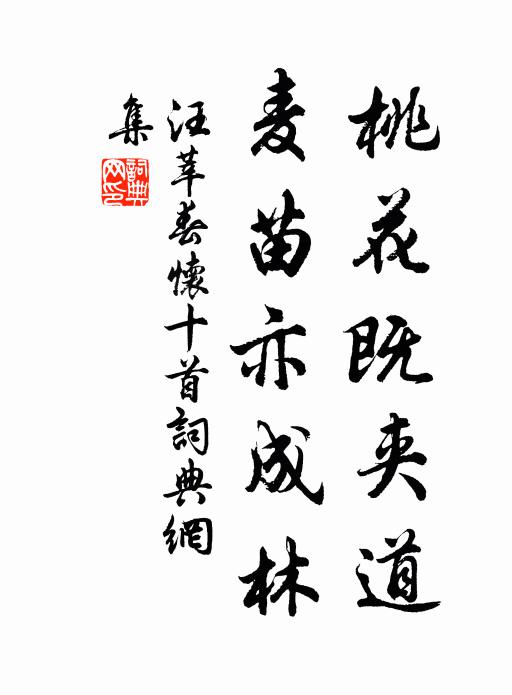 桃花既夹道
麦苗亦成林
汪莘春懷十首詞典網
集
詞典
网印